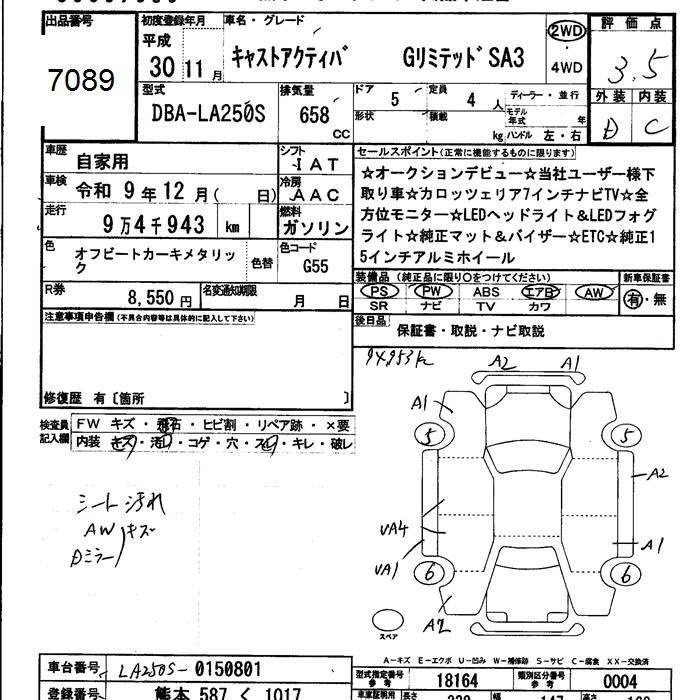 出品番号 初度登録年月 車名・グレード 評価点
7089 平成 30 11月 キャストアクティバ GリミテッドSA3 2WD・4WD 3.5
型式 排気量 ドア 定員 ディーラー・並行 外装 内装
DBA-LA250S 658 CC 5 4人 モデル年式 年 D C
形状 積載 kg ハンドル 左・右
車歴 自家用 シフト IAT セールスポイント(正常に機能するものに限ります)
車検 令和 9年12月( 日) 冷房 AAC ☆オークションデビュー☆当社ユーザー様下
取り車☆カロッツェリア7インチナビTV☆全
走行 9万4千943 km 燃料 ガソリン 方位モニター☆LEDヘッドライト&LEDフォグ
ライト☆純正マット&バイザー☆ETC☆純正1
5インチアルミホイール
色 オフビートカーキメタリック 色替 色コード G55
装備品(純正品に限り○をつけてください) 新車保証書
PS PW ABS エアB AW 有・無
SR ナビ TV カワ
R券 8,550円 名変通知期限 月 日
後日品 保証書・取説・ナビ取説
注意事項申告欄(不具合内容等は具体的に記入して下さい)
修復歴 有〔箇所 〕
検査員記入欄 FW キズ・飛石・ヒビ割・リペア跡・×要
内装 キズ・汚れ・コゲ・穴・スレ・キレ・破レ
シート汚れ
AW キズ
Dミラー
A2 A1
A1
5 5
A2
UA4
A1
UA1
6 6
A2
スペア
A-キズ E-エクボ U-凹み W-補修跡 S-サビ C-腐食 XX-交換済
車台番号 LA250S-0150801 型式指定番号 参考 18164 類別区分番号 参考 0004
登録番号 熊本 587 く 1017